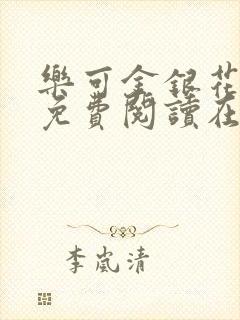 樂可金銀花
免費閱讀在
李嵐清